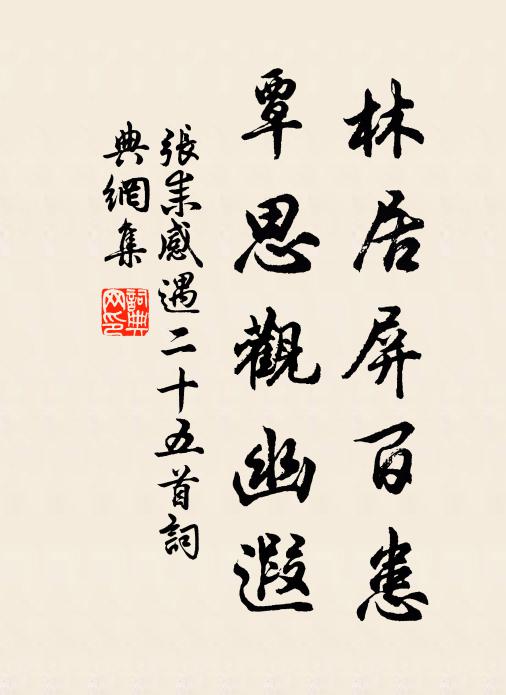 林居屏百患
覃思觀幽遐
張耒感遇二十五首詞
典網集
詞典網印